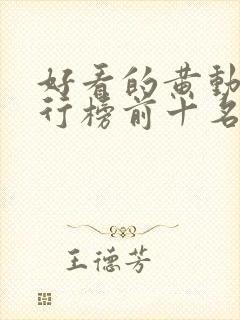 好看的黄動
行榜前十名
王德芳